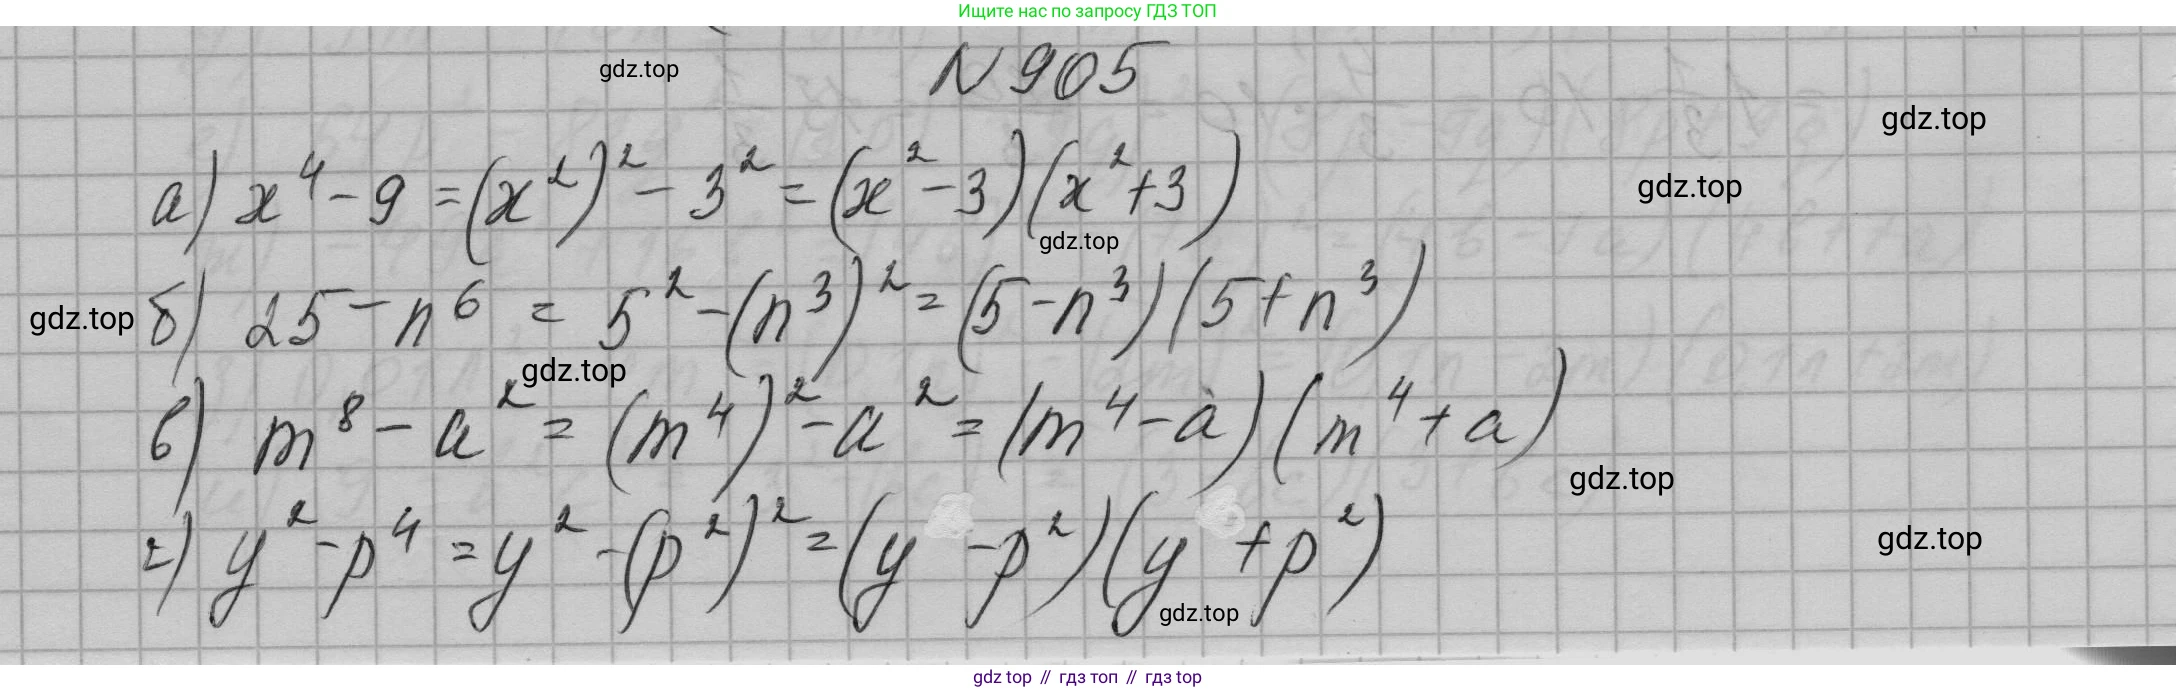 Ищите нас по запросу ГДЗ ТОП
N 905
gdz.top
gdz.top
а) x⁴ - 9 = (x²)² - 3² = (x² - 3)(x² + 3)
gdz.top
gdz.top
б) 25 - n⁶ = 5² - (n³)² = (5 - n³)(5 + n³)
gdz.top
gdz.top
в) m⁸ - a² = (m⁴)² - a² = (m⁴ - a)(m⁴ + a)
gdz.top
г) y² - p⁴ = y² - (p²)² = (y - p²)(y + p²)
gdz.top
gdz.top
gdz top // гдз топ // гдз top